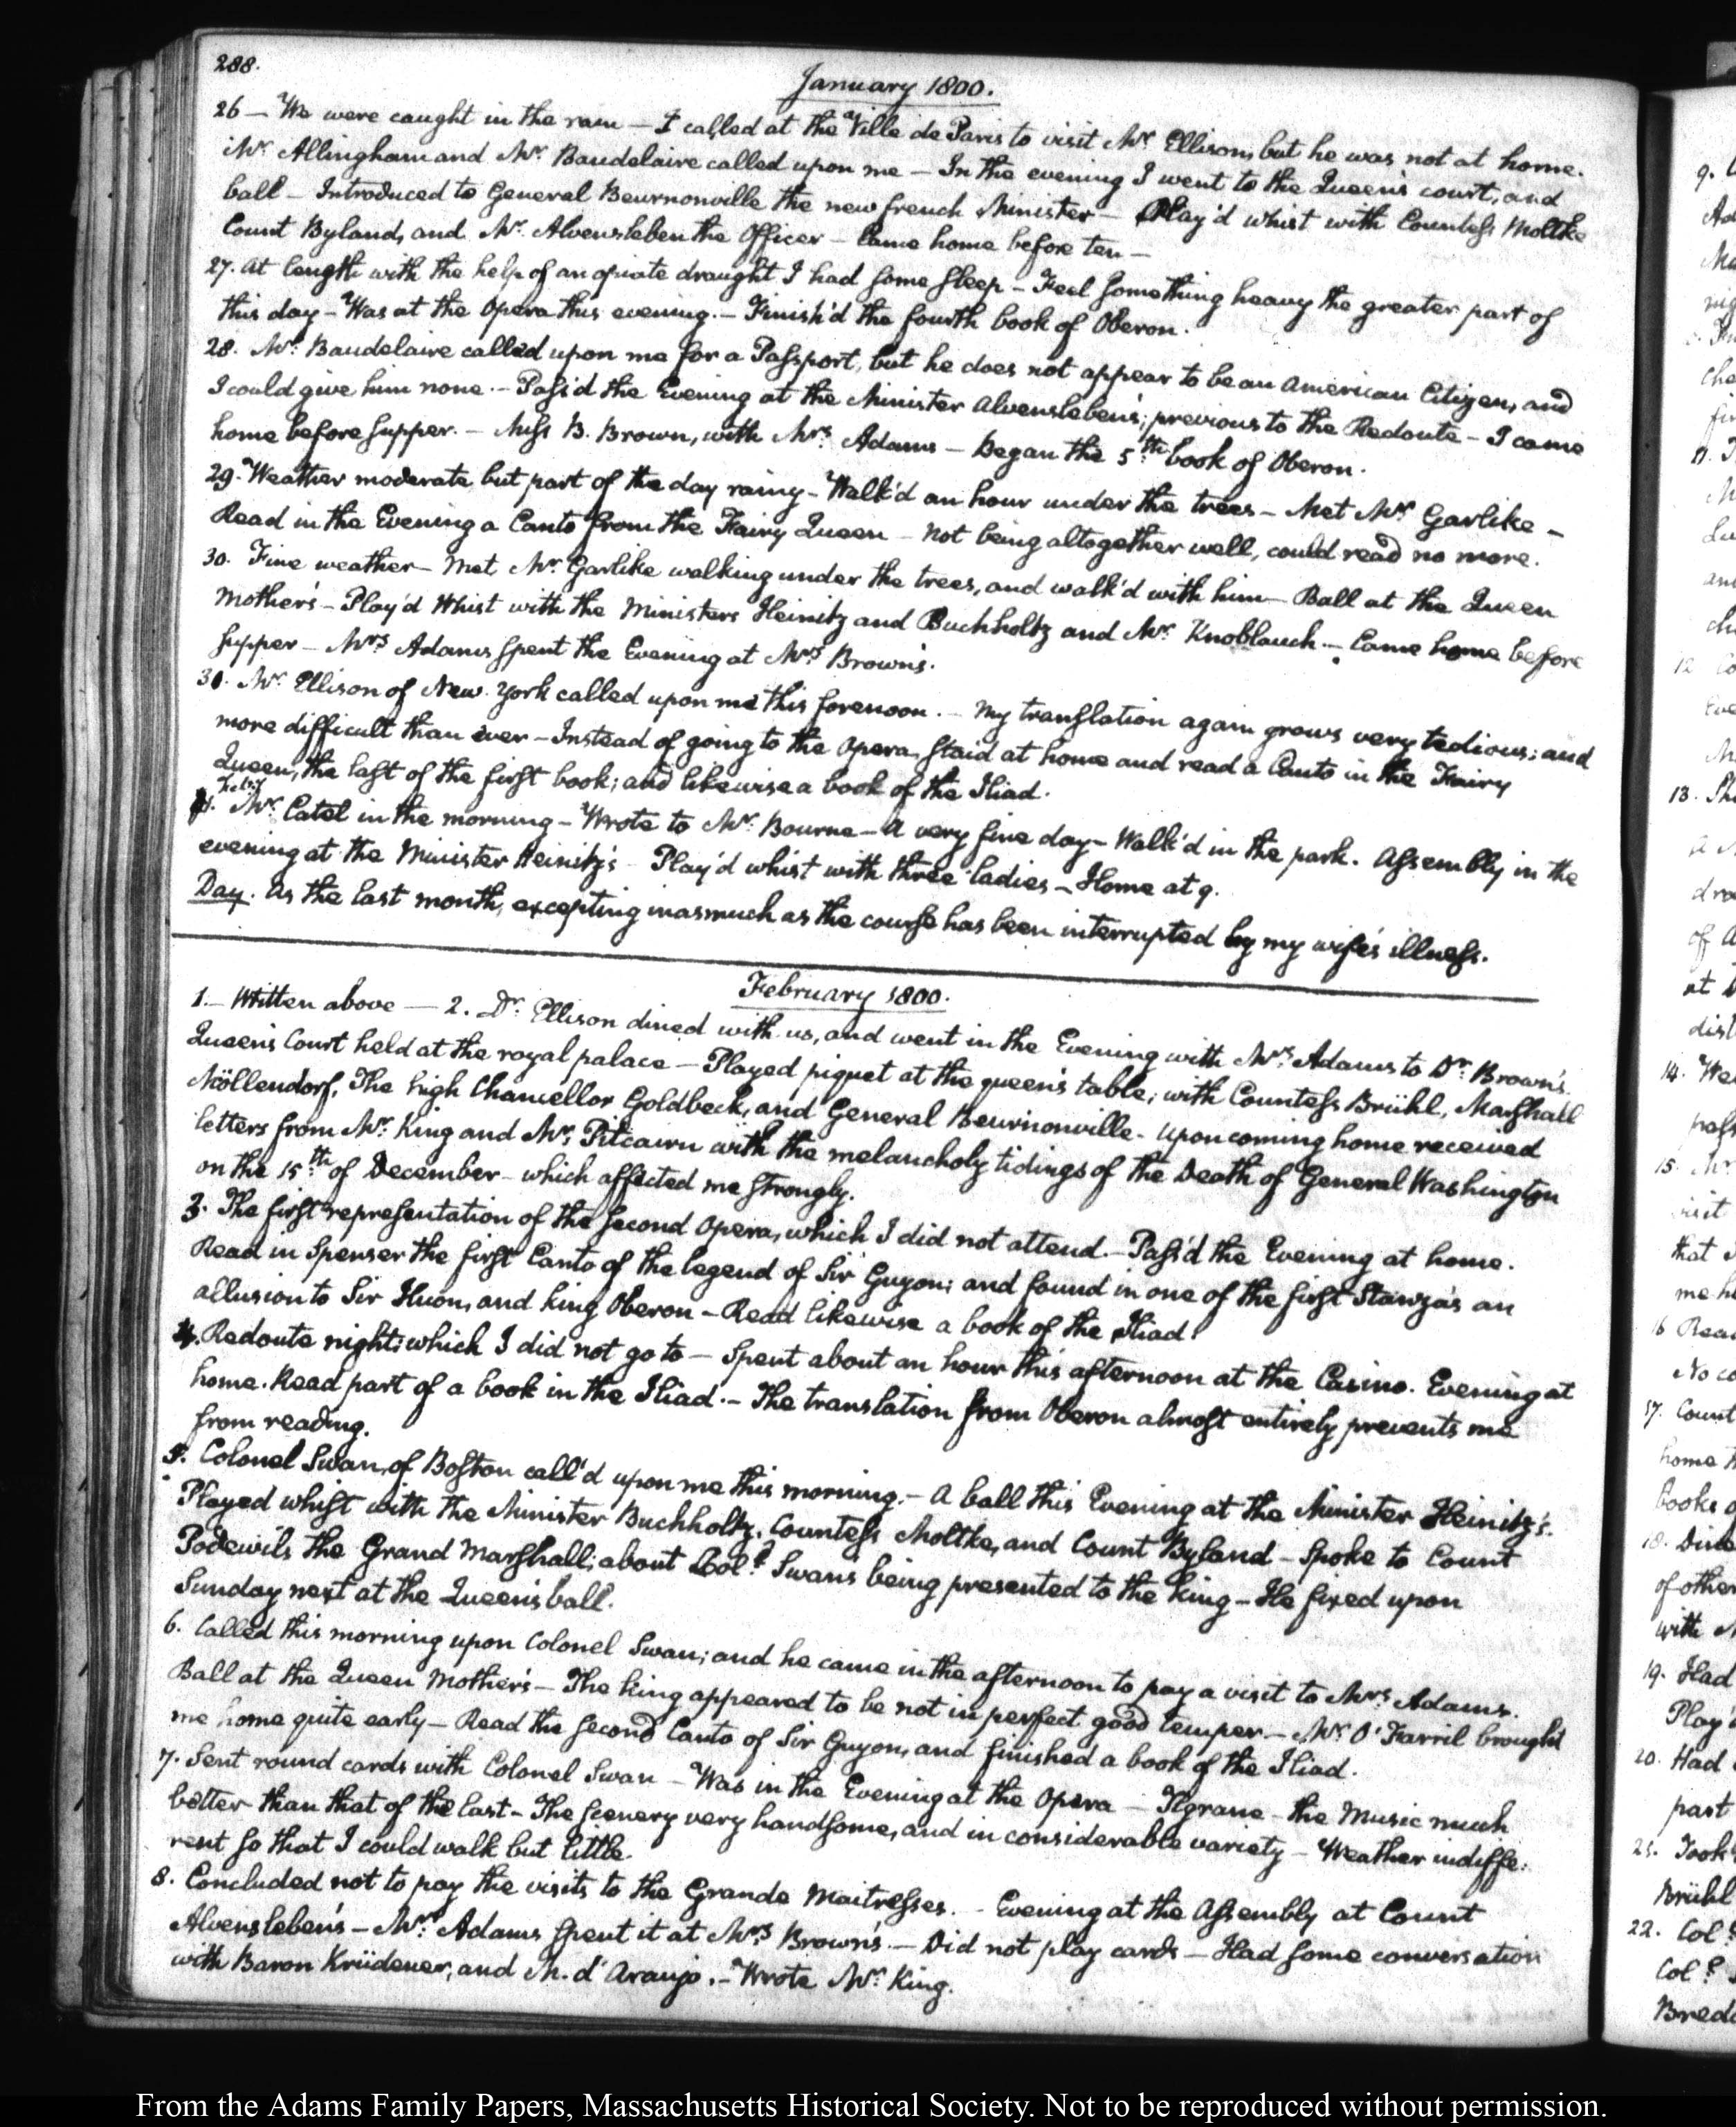 288.
January 1800.
26 — We were caught in the rain — I called at the Ville de Paris to visit Mr. Ellison, but he was not at home.
Mr. Allingham and Mr. Baudelaire called upon me — In the evening I went to the Queen's court, and
ball — Introduced to General Beurnonville the new french Minister — Play'd whist with Countess Moltke
Count Byland, and Mr. Alvensleben the Officer — Came home before ten —
27. At length with the help of an opiate draught I had some sleep — Feel something heavy the greater part of
this day — Was at the Opera this evening. — Finish'd the fourth book of Oberon.
28. Mr. Baudelaire called upon me for a Passport, but he does not appear to be an American Citizen, and
I could give him none. — Pass'd the Evening at the Minister Alvensleben's; previous to the Redoute — I came
home before supper. — Miss B. Brown, with Mrs. Adams — Began the 5th. book of Oberon.
29. Weather moderate but part of the day rainy — Walk'd an hour under the trees — Met Mr. Garlike —
Read in the Evening a Canto from the Fairy Queen — not being altogether well, could read no more.
30. Fine weather — Met Mr. Garlike walking under the trees, and walk'd with him — Ball at the Queen
Mother's — Play'd Whist with the Ministers Heinitz and Buchholtz and Mr. Knoblauch. — Came home before
supper — Mrs. Adams spent the Evening at Mrs. Brown's.
31. Mr. Ellison of New York called upon me this forenoon. — My translation again grows very tedious; and
more difficult than ever — Instead of going to the Opera, staid at home and read a Canto in the Fairy
Queen, the last of the first book; and likewise a book of the Iliad.
Feby
1. Mr. Catel in the morning — Wrote to Mr. Bourne — A very fine day — Walk'd in the park. Assembly in the
evening at the Minister Heinitz's — Play'd whist with three ladies — Home at 9.
Day. As the last month, excepting inasmuch as the course has been interrupted by my wife's illness.
February 1800.
1. — Written above — 2. Dr. Ellison dined with us, and went in the Evening with Mrs. Adams to Dr. Brown's.
Queen's Court held at the royal palace — Played piquet at the queen's table, with Countess Brühl, Marshall
Möllendorf, The high Chancellor Goldbeck, and General Beurnonville. Upon coming home received
letters from Mr. King and Mr. Pitcairn with the melancholy tidings of the Death of General Washington
on the 15th. of December — which affected me strongly.
3. The first representation of the second Opera, which I did not attend. — Pass'd the Evening at home.
Read in Spenser the first Canto of the legend of Sir Guyon; and found in one of the first Stanza's an
allusion to Sir Huon, and king Oberon — Read likewise a book of the Iliad.
4. Redoute night; which I did not go to — Spent about an hour this afternoon at the Casino. Evening at
home. Read part of a book in the Iliad. — The translation from Oberon almost entirely prevents me
from reading.
5. Colonel Swan, of Boston call'd upon me this morning. — A ball this Evening at the Minister Heinitz's.
Played whist with the Minister Buchholtz, Countess Moltke, and Count Byland — Spoke to Count
Podewils the Grand Marshall; about Coll. Swan's being presented to the king — He fixed upon
Sunday next at the Queen's ball.
6. Called this morning upon Colonel Swan; and he came in the afternoon to pay a visit to Mrs. Adams.
Ball at the Queen Mother's — The king appeared to be not in perfect good temper. — Mr. O'Farril brought
me home quite early — Read the second Canto of Sir Guyon, and finished a book of the Iliad.
7. Sent round cards with Colonel Swan — Was in the Evening at the Opera — Tigrane — the Music much
better than that of the last — The scenery very handsome, and in considerable variety — Weather indiffe:
rent so that I could walk but little.
8. Concluded not to pay the visits to the Grande Maitresses. — Evening at the Assembly at Count
Alvensleben's — Mrs. Adams spent it at Mrs. Brown's. — Did not play cards — Had some conversation
with Baron Krüdener, and M. d'Araujo. — Wrote Mr. King.
From the Adams Family Papers, Massachusetts Historical Society. Not to be reproduced without permission.